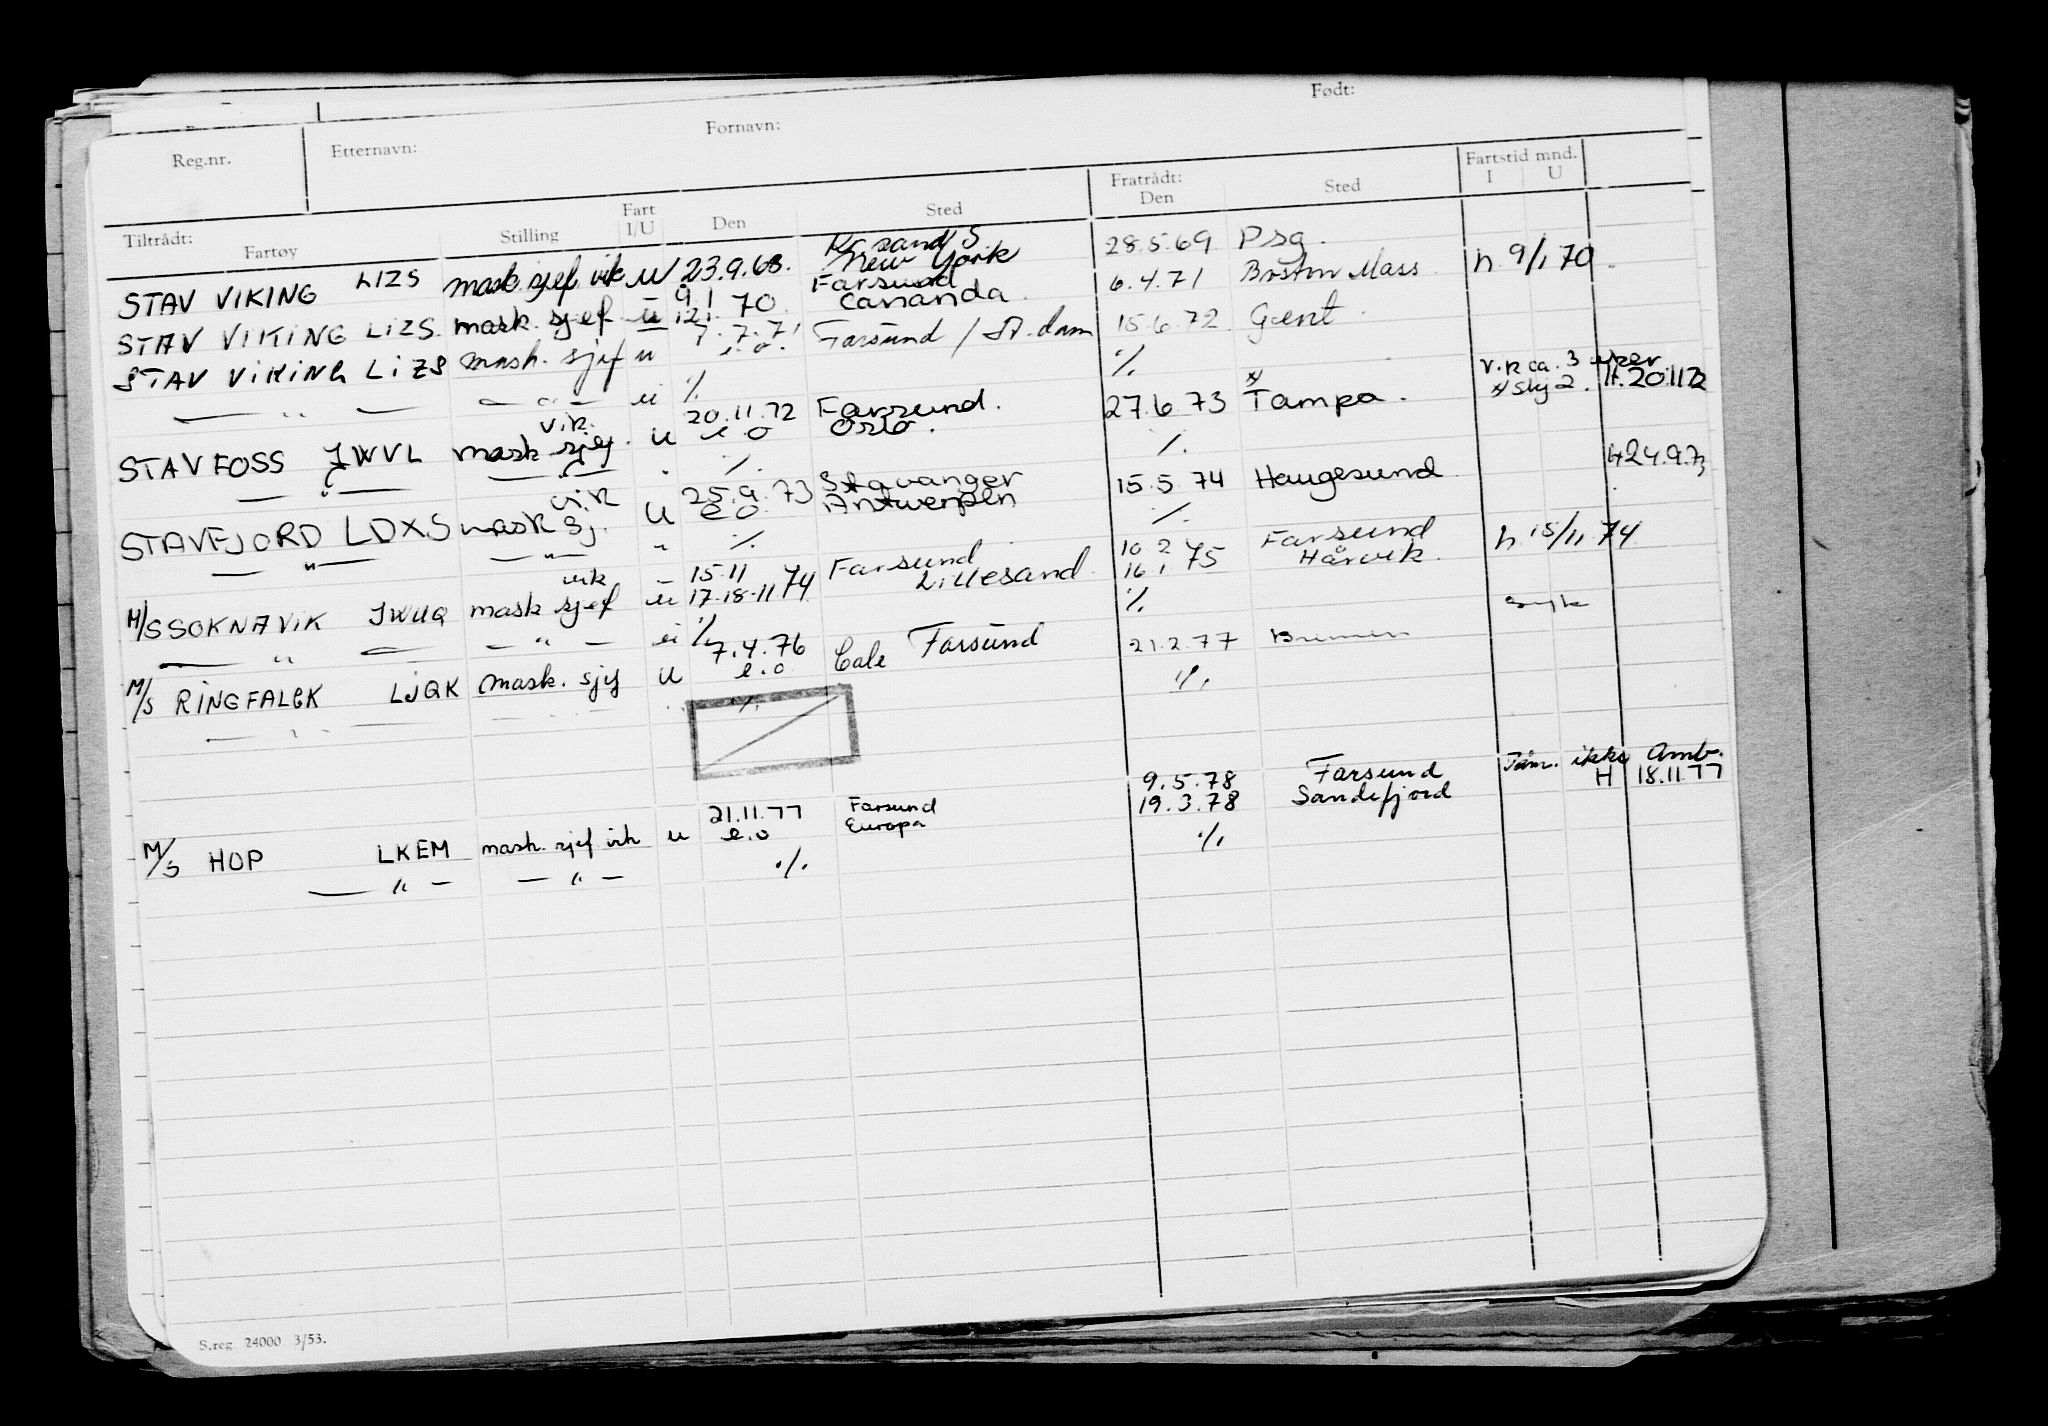 Reg.nr. Etternavn: Fornavn: Født:
Tiltrådt: Fratrådt: Fartstid mnd.
Fartøy Stilling Fart I/U Den Sted Den Sted I U
Kr.sand S
STAV VIKING LIZS mask.sjef vik u 23.9.68. New York 28.5.69 Psg.
Farsund
STAV VIKING LIZS. mask. sjef u 9.1 12.1. 70. Cananda. 6.4.71 Boston Mass h. 9/1 70.
STAV VIKING LIZS mask. sjef u 7.7.71 e.o. Farsund / A.dam 15.6.72 Gent.
— " — — " — u % % v.k ca. 3 uker
STAVFOSS JWVL vik. mask sjef. u 20.11.72 e.o Farsund. Oslo. 27.6 73 x/ Tampa. x/ Skj 2. H. 20.11 72
— " — — " — " %. %.
STAVFJORD LDXS vik mask sj. u 25.9.73 e.o. Stavanger Antwerpen 15.5.74 Haugesund H 24.9.73
— " — — " — " %. %.
M/S SOKNAVIK JWUQ vik mask sjef u 15.11 17.18-11 74 Farsund Lillesand 10 2 16 1 75 Farsund Hårvik. h. 15/11 74
— " — — " — u % %
M/S RINGFALCK LJQK mask. sjef u 7.4.76 e.o Cale Farsund 21.2.77 Bremen syk
— " — %. %.
M/S HOP LKEM mask. sjef vik u 21.11.77 e.o Farsund Europa 9.5.78 19.3.78 Farsund Sandefjord Tém. ikke Amb. H 18.11.77
— " — — " — %. %
S.reg. 24000. 3/53.